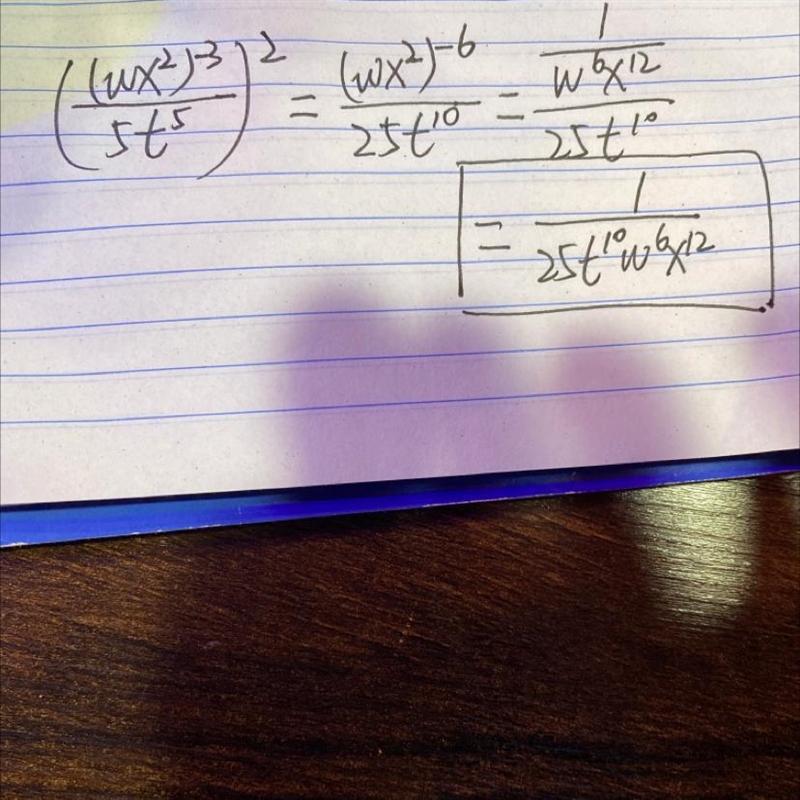 \left(\frac{(wx^2)^{-3}}{5t^5}\right)^2 = \frac{(wx^2)^{-6}}{25t^{10}} = \frac{\frac{1}{w^6x^{12}}}{25t^{10}}
= \frac{1}{25t^{10}w^6x^{12}}